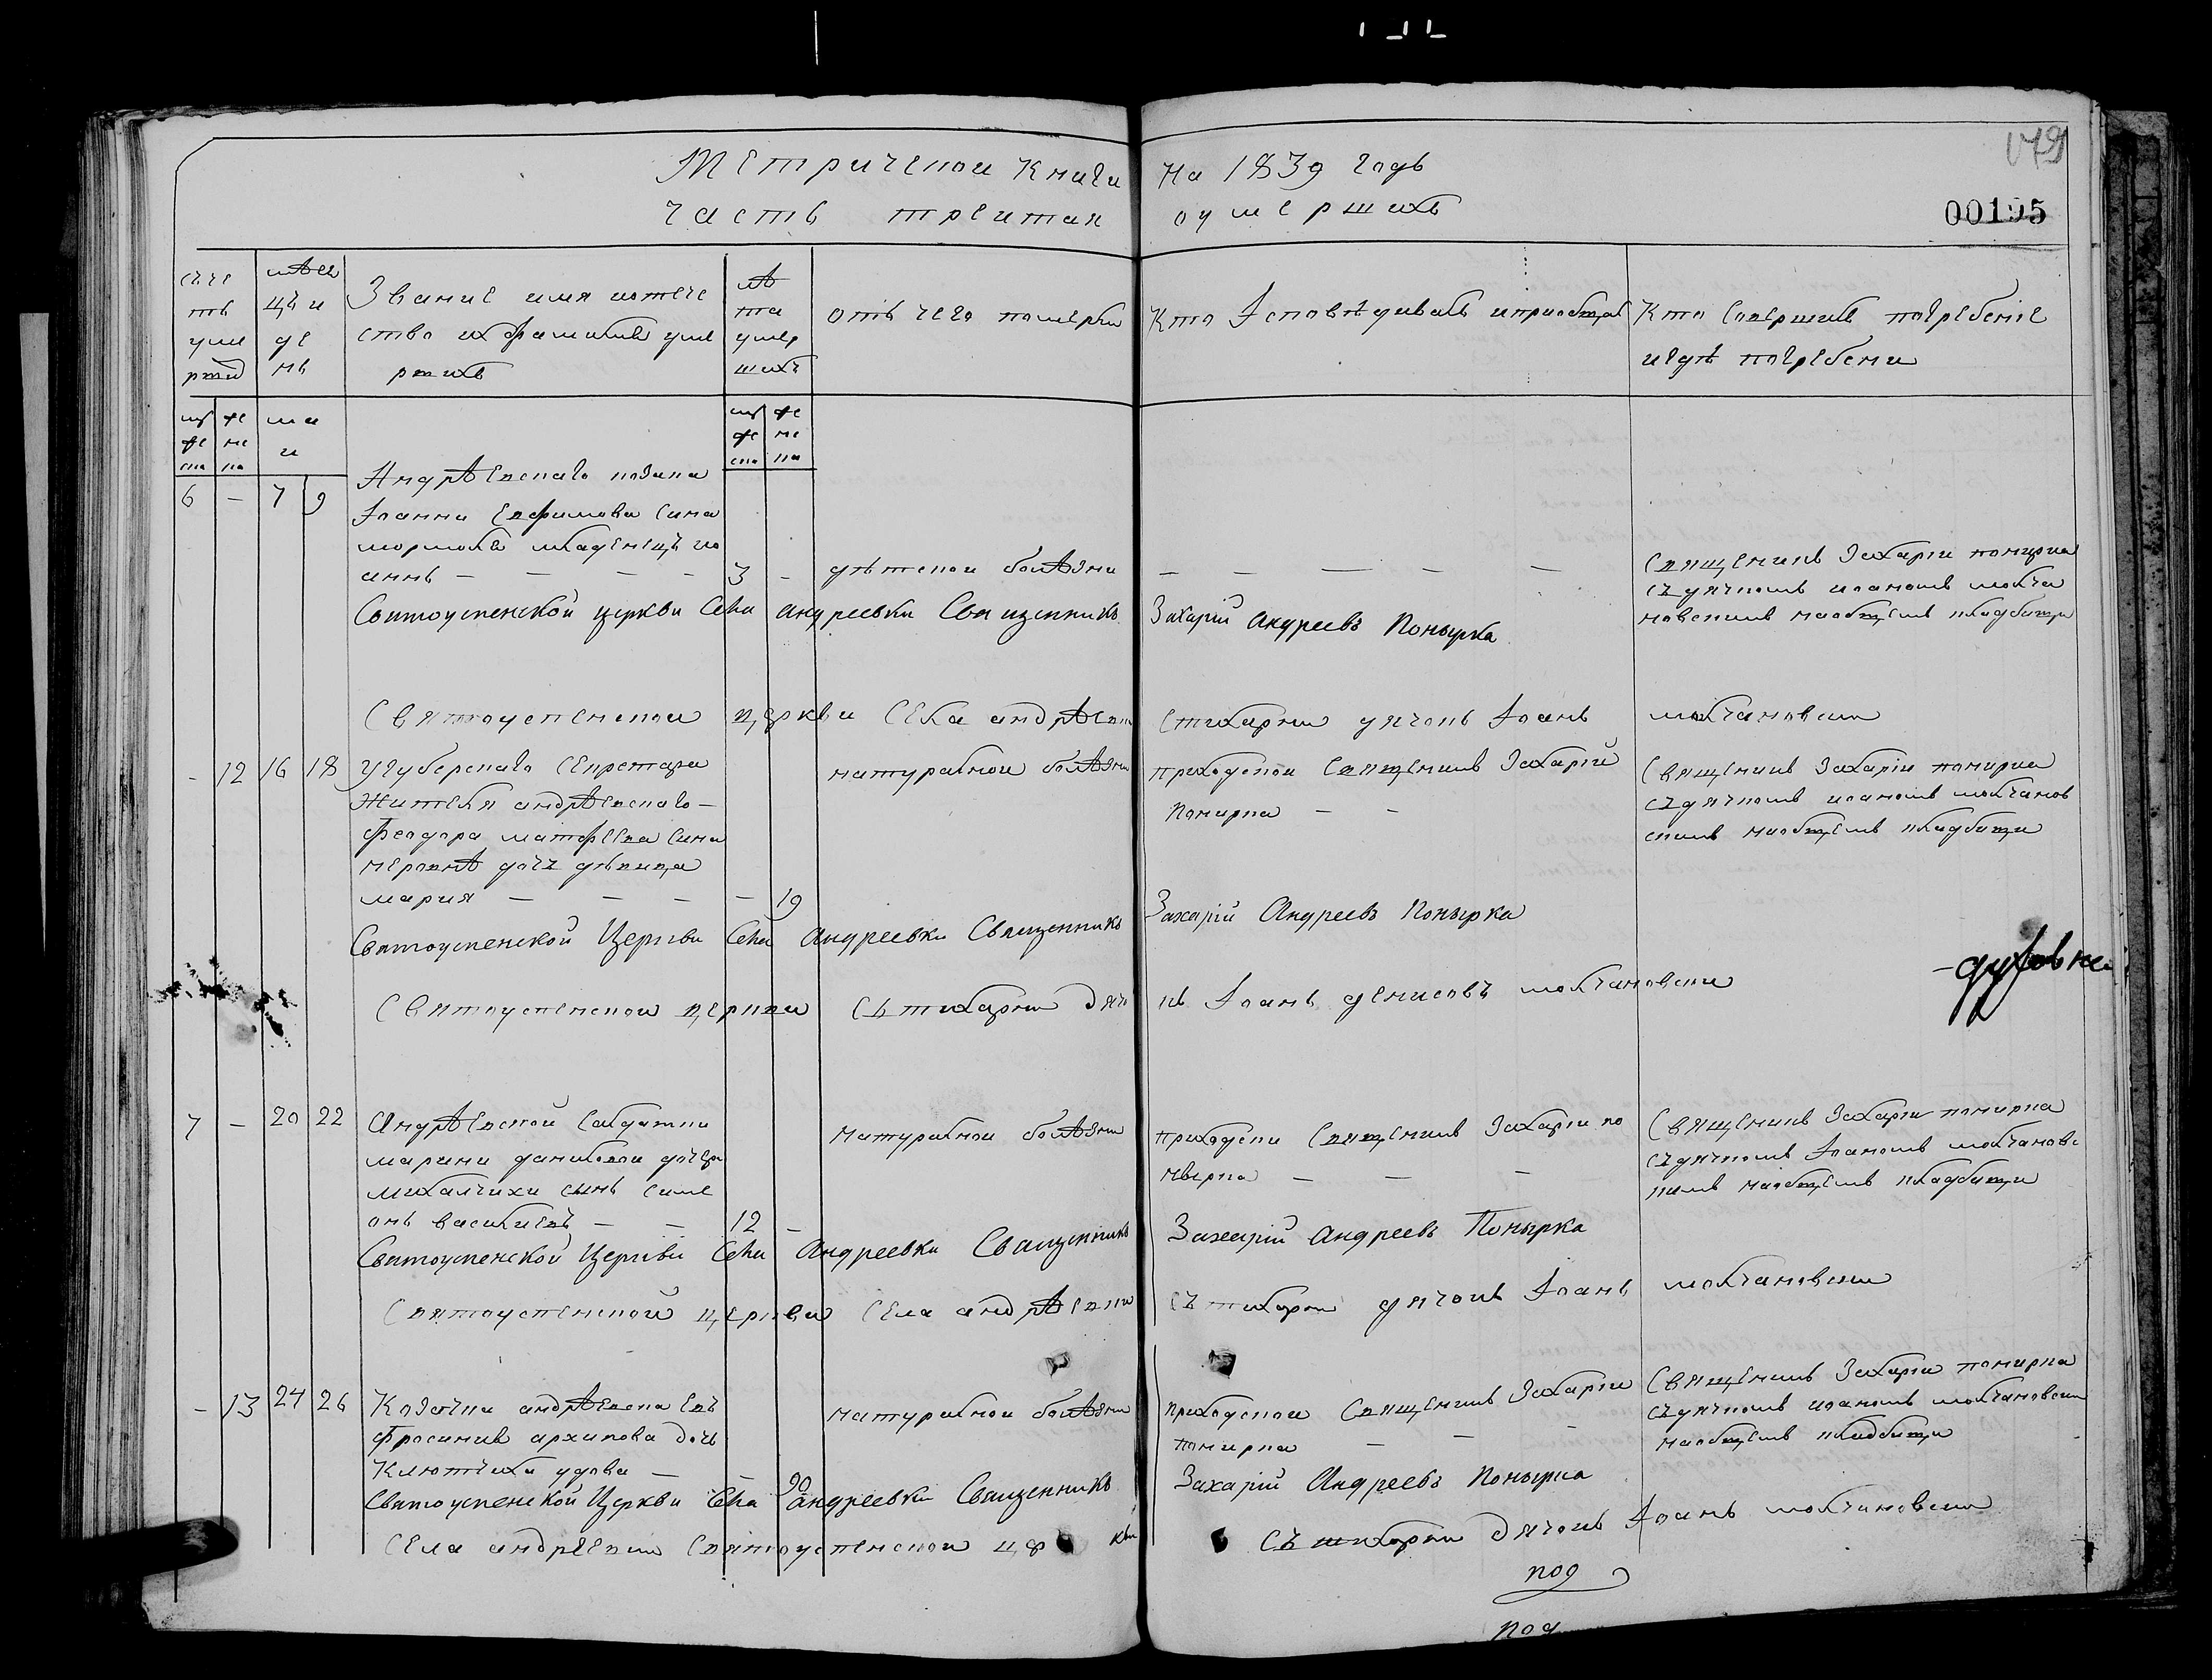 Метрической Книги На 1839 годъ
часть третия оумершихъ
179
00195
счетъ умершихъ
мѣсецъ и день
Званіе имя иотече
ство ихфамилия уме
ршихъ
лѣта умершихъ
отъ чего померъ
Кто Исповѣдивалъ иприобщалъ
Кто совершилъ погребеніе
игдѣ погребени
маи
6 - 7 9
Андрѣевскаго козака
Іоанна Евфимова сина
младенецъ ио
аннъ — — — — 3 - дѣтской болѣзни — — — — —
Священикъ Захарїи понирка
съдячкомъ иоаномъ молча
новскимъ наобщемъ кладбищи
Святоуспенской церкви Села андреевки Священникъ Захарій Андреевъ Понырка
Святоуспенской церкви Села андрѣевки Стихарни дячокъ Іоанъ молчановски
- 12 16 18
Угуберскаго Секретара
жителя андрѣевскаго —
Феодора матфеева сина
дочъ дѣвица
мария — — — — 19
натуралной болѣзни
приходской Священикъ Захарїй
Понирка — —
Священикъ Захарїи понирка
съдячкомъ иоаномъ молчанов
скимъ наобщемъ кладбищи
Святоуспенской Церкви Села Андреевки Священникъ Захарій Андреевъ Понырка
Святоуспенской церкви Съ тихарни дячо къ Іоанъ денисовъ молчановски
-духовни
7 - 20 22
Андрѣевской салдатки
марини даниловой дочери
михалчихи сынъ симе
онъ василиевъ — — 12 -
натуралной болѣзни
приходски Священикъ Захарїи по
нырка — — —
Священикъ Захарїи понирка
съдячкомъ Іоаномъ молчановс
кимъ наобщемъ кладбищи
Святоуспенской Церкви Села Андреевки Священникъ Захарій Андреевъ Понырка
Святоуспенской церкви Села андрѣевки Съ тихарни дячокъ Іоанъ молчановски
- 13 24 26
Козачки андрѣевска евъ
фросинив архипова дочь
Клютчиха удова — — 90
натуралной болѣзни
приходской Священикъ Захарїи
понирка — — —
Священикъ Захарїи понирка
съдячкомъ иоаномъ молчановски
наобщемъ кладбищи
Святоуспенской Церкви Села андреевки Священникъ Захарій Андреевъ Понырка
Села андреевки Святоуспенской церкви Съ тихарни дячокъ Іоанъ молчановски
под
под